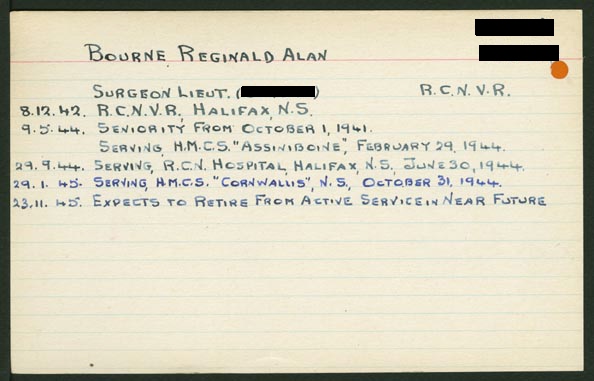 BOURNE REGINALD ALAN
SURGEON LIEUT. ( ) R.C.N.V.R.
8.12.42. R.C.N.V.R, HALIFAX, N.S.
9.5.44. SENIORITY FROM OCTOBER 1, 1941.
SERVING, H.M.C.S. "ASSINIBOINE", FEBRUARY 29, 1944.
29.9.44. SERVING, R.C.N. HOSPITAL, HALIFAX, N.S, JUNE 30, 1944.
29.1.45. SERVING, H.M.C.S. "CORNWALLIS", N.S, OCTOBER 31, 1944.
23.11.45. EXPECTS TO RETIRE FROM ACTIVE SERVICE IN NEAR FUTURE